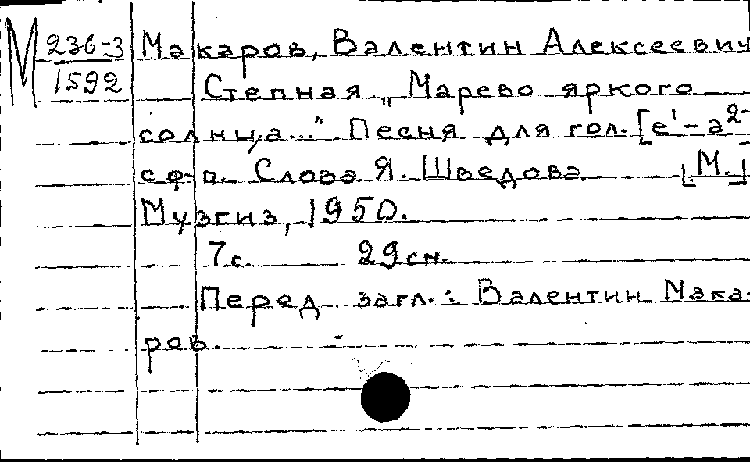 М 236-3 Макаров, Валентин Алексеевич
1592 Степная „Марево яркого
солнца..." Песня для гол. [e¹-a²-]
с ф-п. Слова Я. Шведова [М.]
Музгиз, 1950.
7с. 29см.
Перед загл.: Валентин Мака-
ров.